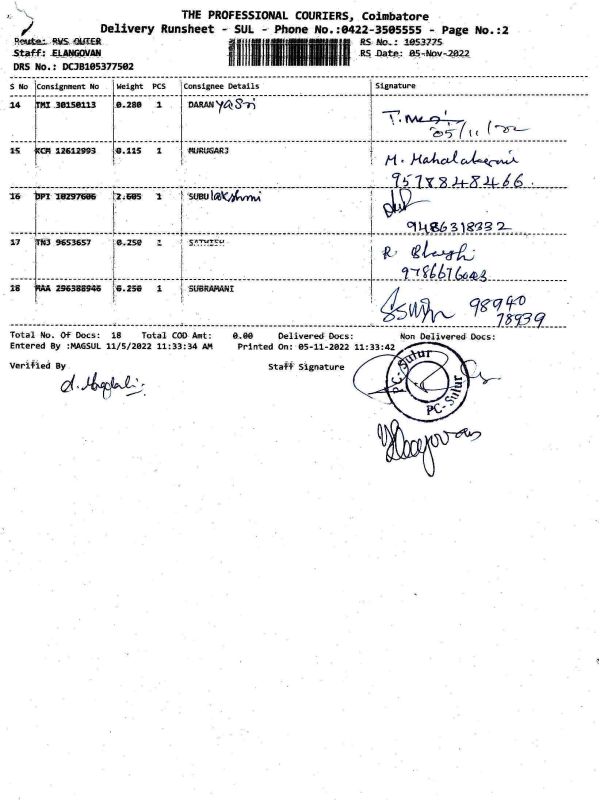 THE PROFESSIONAL COURIERS, Coimbatore
Delivery Runsheet - SUL - Phone No.:0422-3505555 - Page No.:2
Route: RVS OUTER RS No.: 1053775
Staff: ELANGOVAN RS Date: 05-Nov-2022
DRS No.: DCJB105377502
S No Consignment No Weight PCS Consignee Details Signature
14 TMI 30150113 0.280 1 DARANyaSri
05/11/22
15 KCM 12612993 0.115 1 MURUGARJ M. Mahalakshmi
9578848466
16 DPI 10297606 2.605 1 SUBUlakshmi
9486318332
17 TNJ 9653657 0.250 1 SATHISH R
18 MAA 296388946 0.250 1 SUBRAMANI 98940
78939
Total No. Of Docs: 18 Total COD Amt: 0.00 Delivered Docs: Non Delivered Docs:
Entered By :MAGSUL 11/5/2022 11:33:34 AM Printed On: 05-11-2022 11:33:42
Verified By Staff Signature
PC-Sulur
PC-Sulur